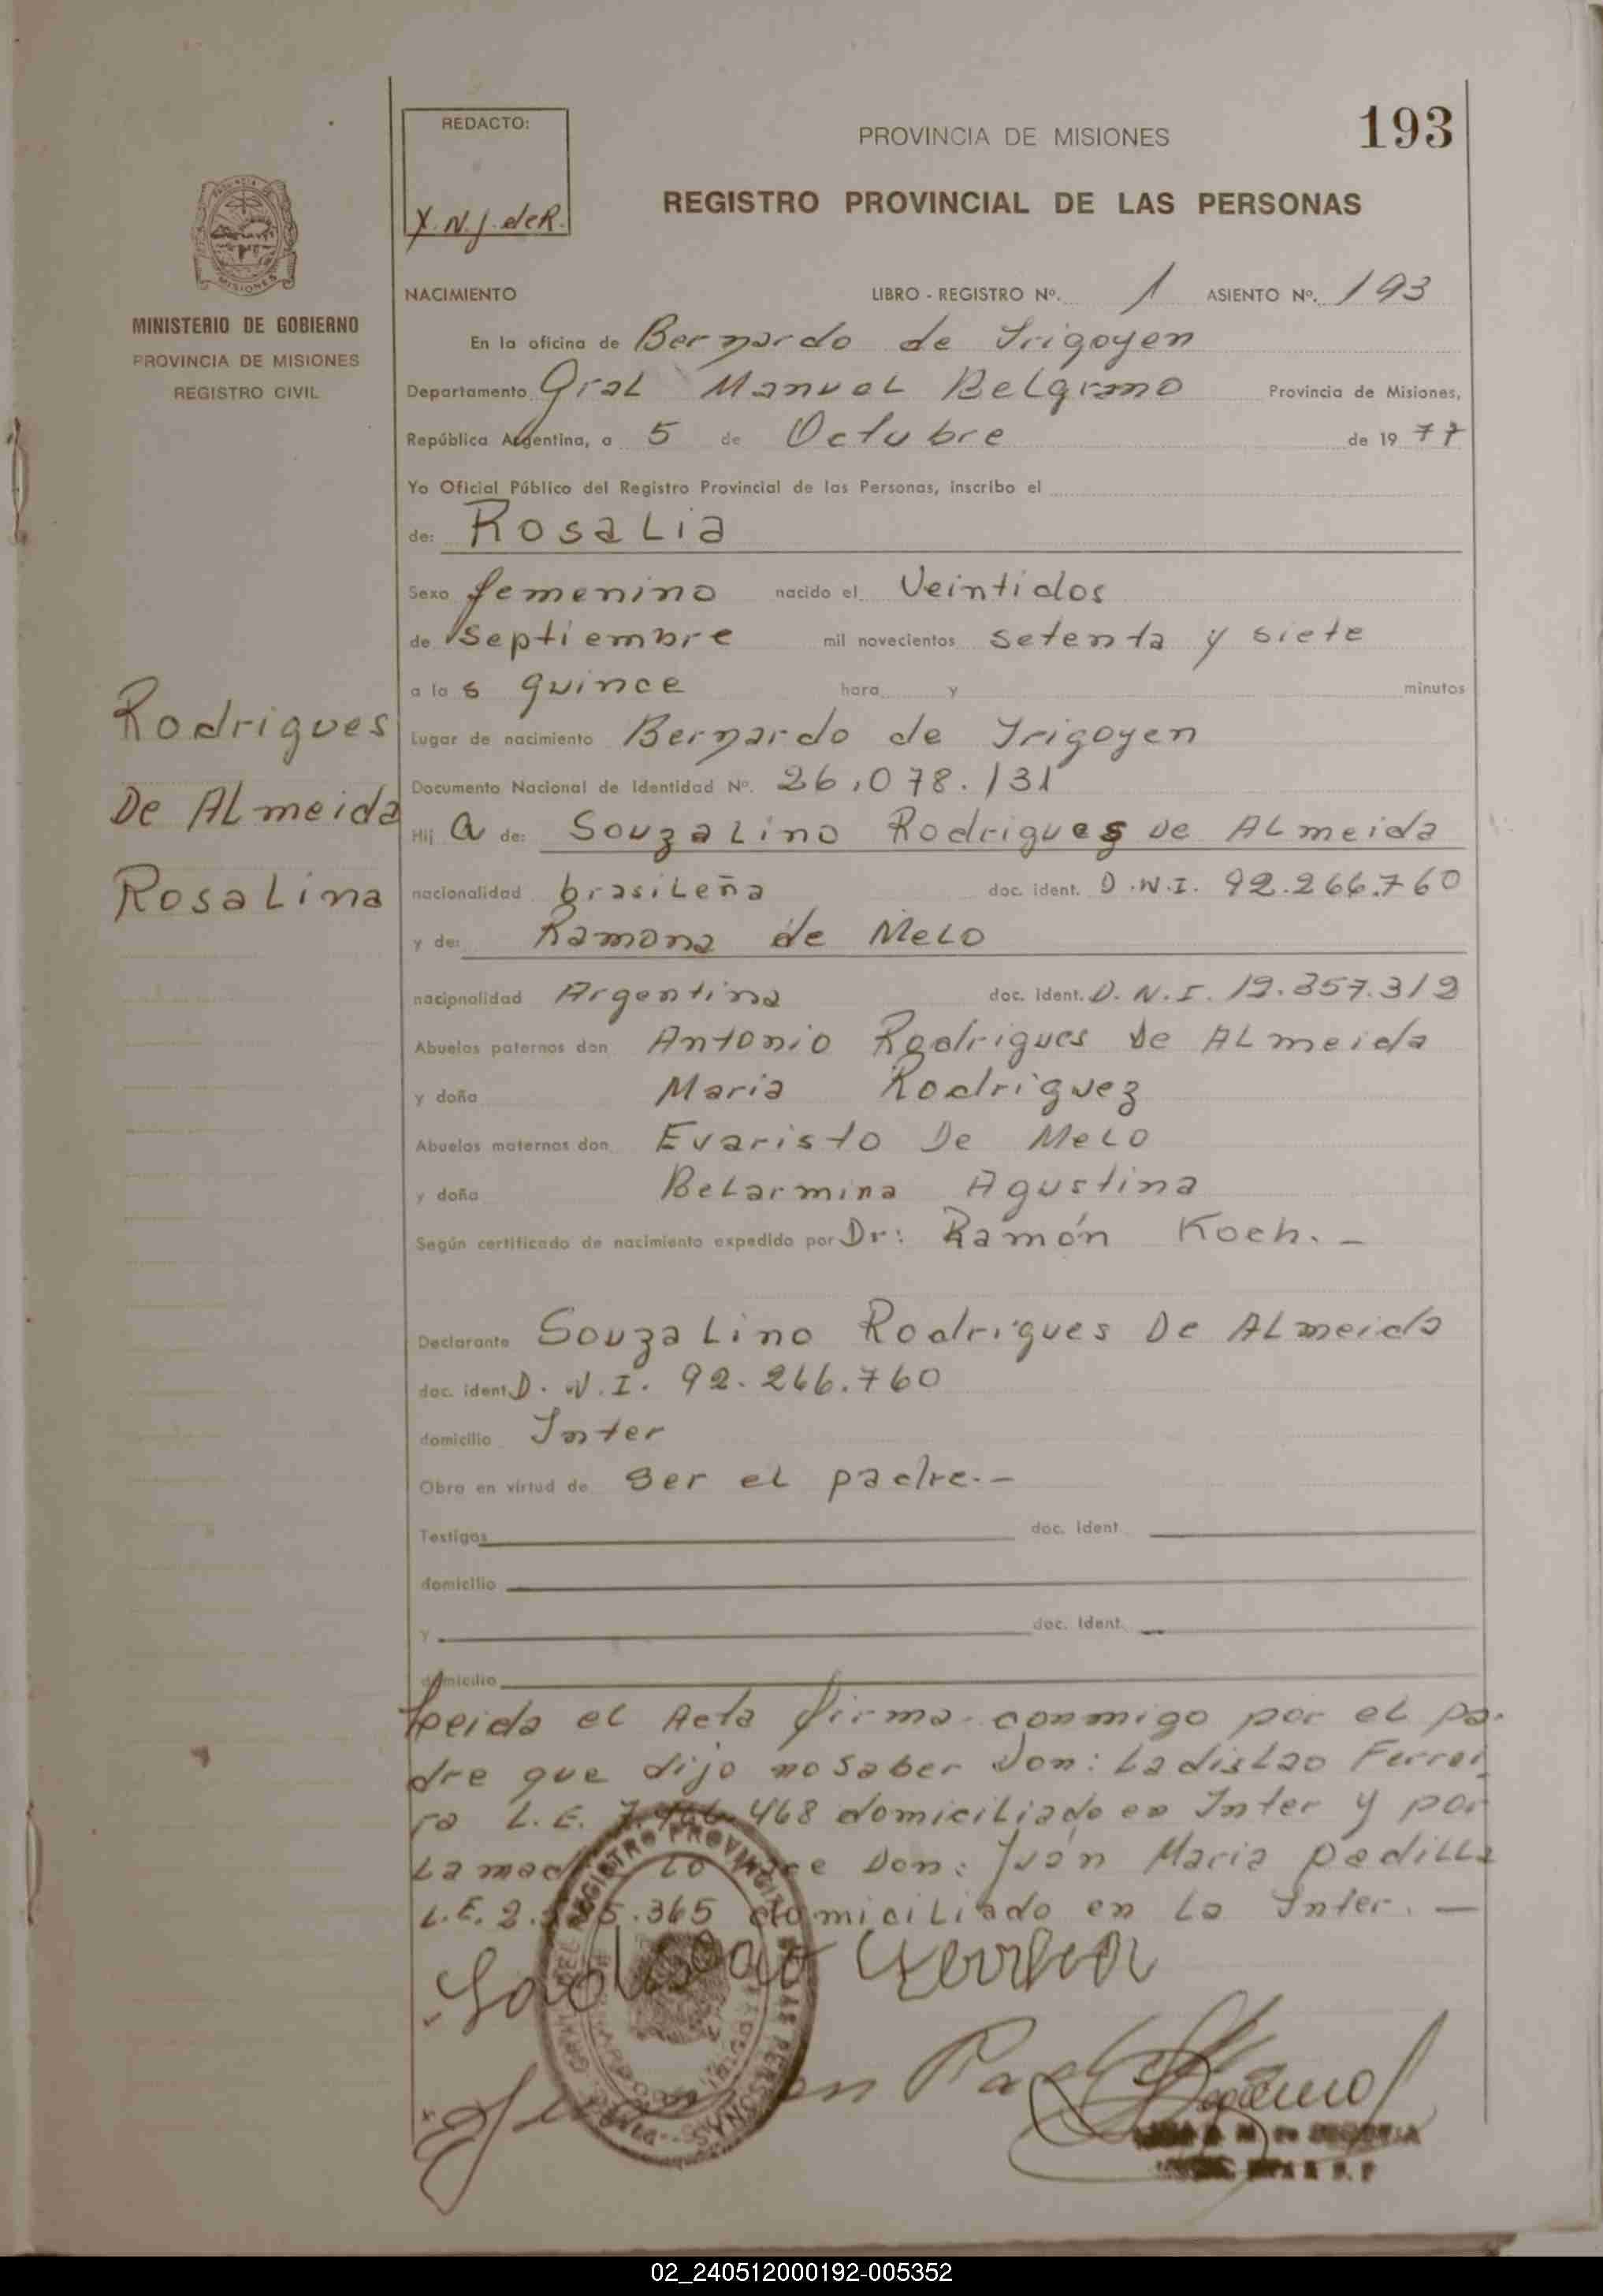 REDACTO:
X.N.J. deR.
PROVINCIA DE MISIONES
193
REGISTRO PROVINCIAL DE LAS PERSONAS
MISIONES
MINISTERIO DE GOBIERNO
PROVINCIA DE MISIONES
REGISTRO CIVIL
NACIMIENTO LIBRO - REGISTRO Nº. 1 ASIENTO Nº. 193
En la oficina de Bernardo de Irigoyen
Departamento Gral Manuel Belgrano Provincia de Misiones,
República Argentina, a 5 de Octubre de 19 77
Yo Oficial Público del Registro Provincial de las Personas, inscribo el
de: Rosalia
Sexo femenino nacido el Veintidos
de Septiembre mil novecientos setenta y siete
a las quince hora y minutos
Rodrigues
De Almeida
Rosalina
Lugar de nacimiento Bernardo de Irigoyen
Documento Nacional de Identidad Nº. 26.078.131
Hij a de: Souzalino Rodrigues De Almeida
nacionalidad brasileña doc. ident. D.N.I. 92.266.760
y de: Ramona de Melo
nacionalidad Argentina doc. ident. D.N.I. 12.357.312
Abuelos paternos don Antonio Rodrigues De Almeida
y doña Maria Rodriguez
Abuelos maternos don Evaristo De Melo
y doña Belarmina Agustina
Según certificado de nacimiento expedido por Dr: Ramón Koch. -
Declarante Souzalino Rodrigues De Almeida
doc. ident. D.N.I. 92.266.760
domicilio Inter
Obra en virtud de ser el padre.-
Testigos doc. ident.
domicilio
y doc. ident.
domicilio
Leida el Acta firma conmigo por el pa-
dre que dijo no saber Don: Ladislao Ferrei
ra L.E. 468 domiciliado en Inter y por
La madre lo hace Don: Juan Maria Padilla
L.E. 2. 5.365 domiciliado en La Inter. -
Ladislao Ferreira
Juan Pad
02_240512000192-005352